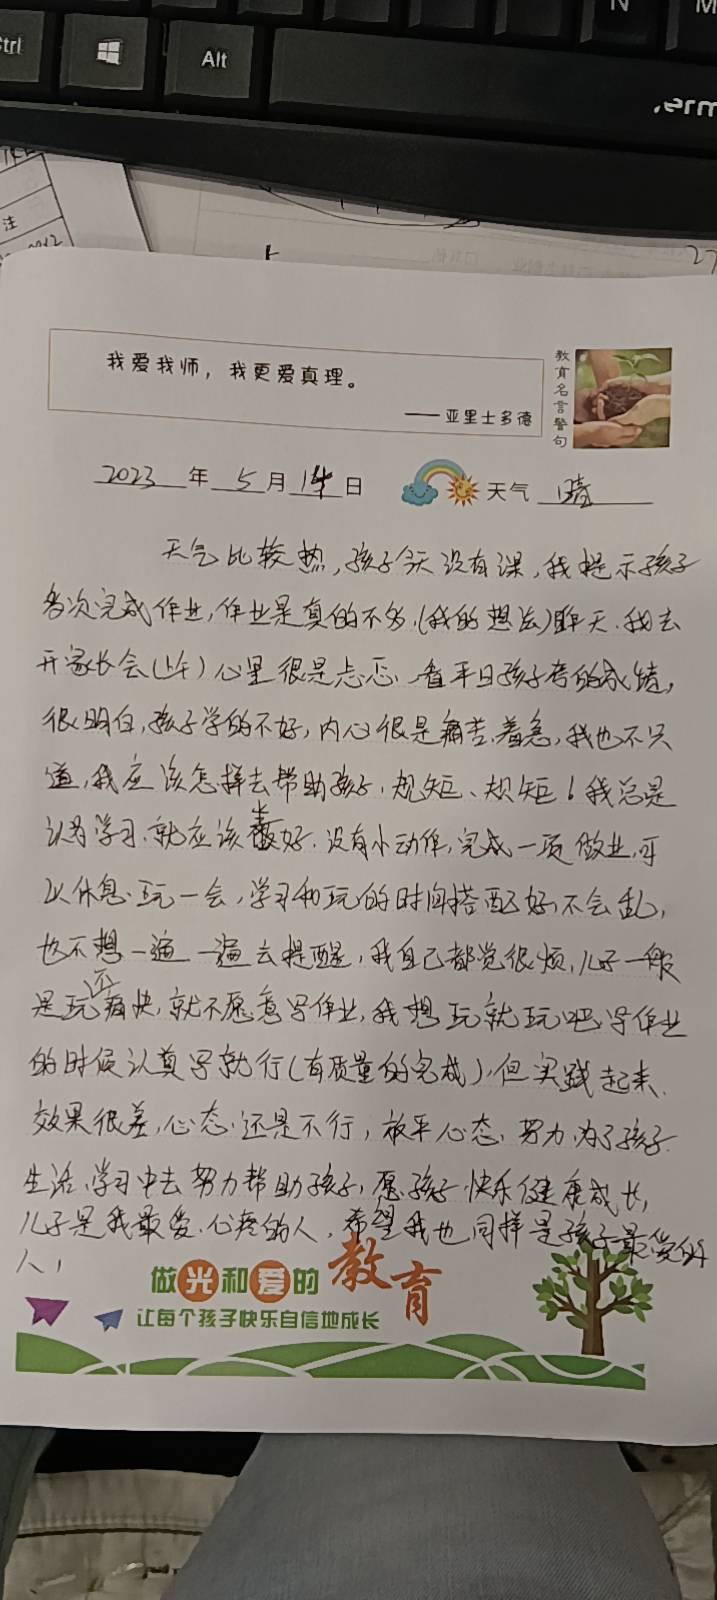 Ctrl
Alt
N
M
注
27
我爱我师，我更爱真理。
——亚里士多德
教育名言警句
2023年5月14日 天气 晴
天气比较热，孩子今天没有课，我提示孩子
多次完成作业，作业是真的不多，(我的想法)昨天，我去
开家长会(上午)心里很是忐忑，看平日孩子考的成绩，
很明白，孩子学的不好，内心很是痛苦，着急，我也不只
道，我应该怎样去帮助孩子，规矩、规矩！我总是
认为学习，就应该坐好，没有小动作，完成一项做业，可
以休息，玩一会，学习和玩的时间搭配好，不会乱，
也不想一遍一遍去提醒，我自己都觉很烦，儿子一般
是玩不痛快，就不愿意写作业，我想玩就玩吧，写作业
的时候认真写就行(有质量的完成)，但实践起来，
效果很差，心态，还是不行，放平心态，努力，为了孩子
生活，学习中去努力帮助孩子，愿孩子快乐健康成长，
儿子是我最爱，心疼的人，希望我也同样是孩子最爱的
人！
做光和爱的教育
让每个孩子快乐自信地成长